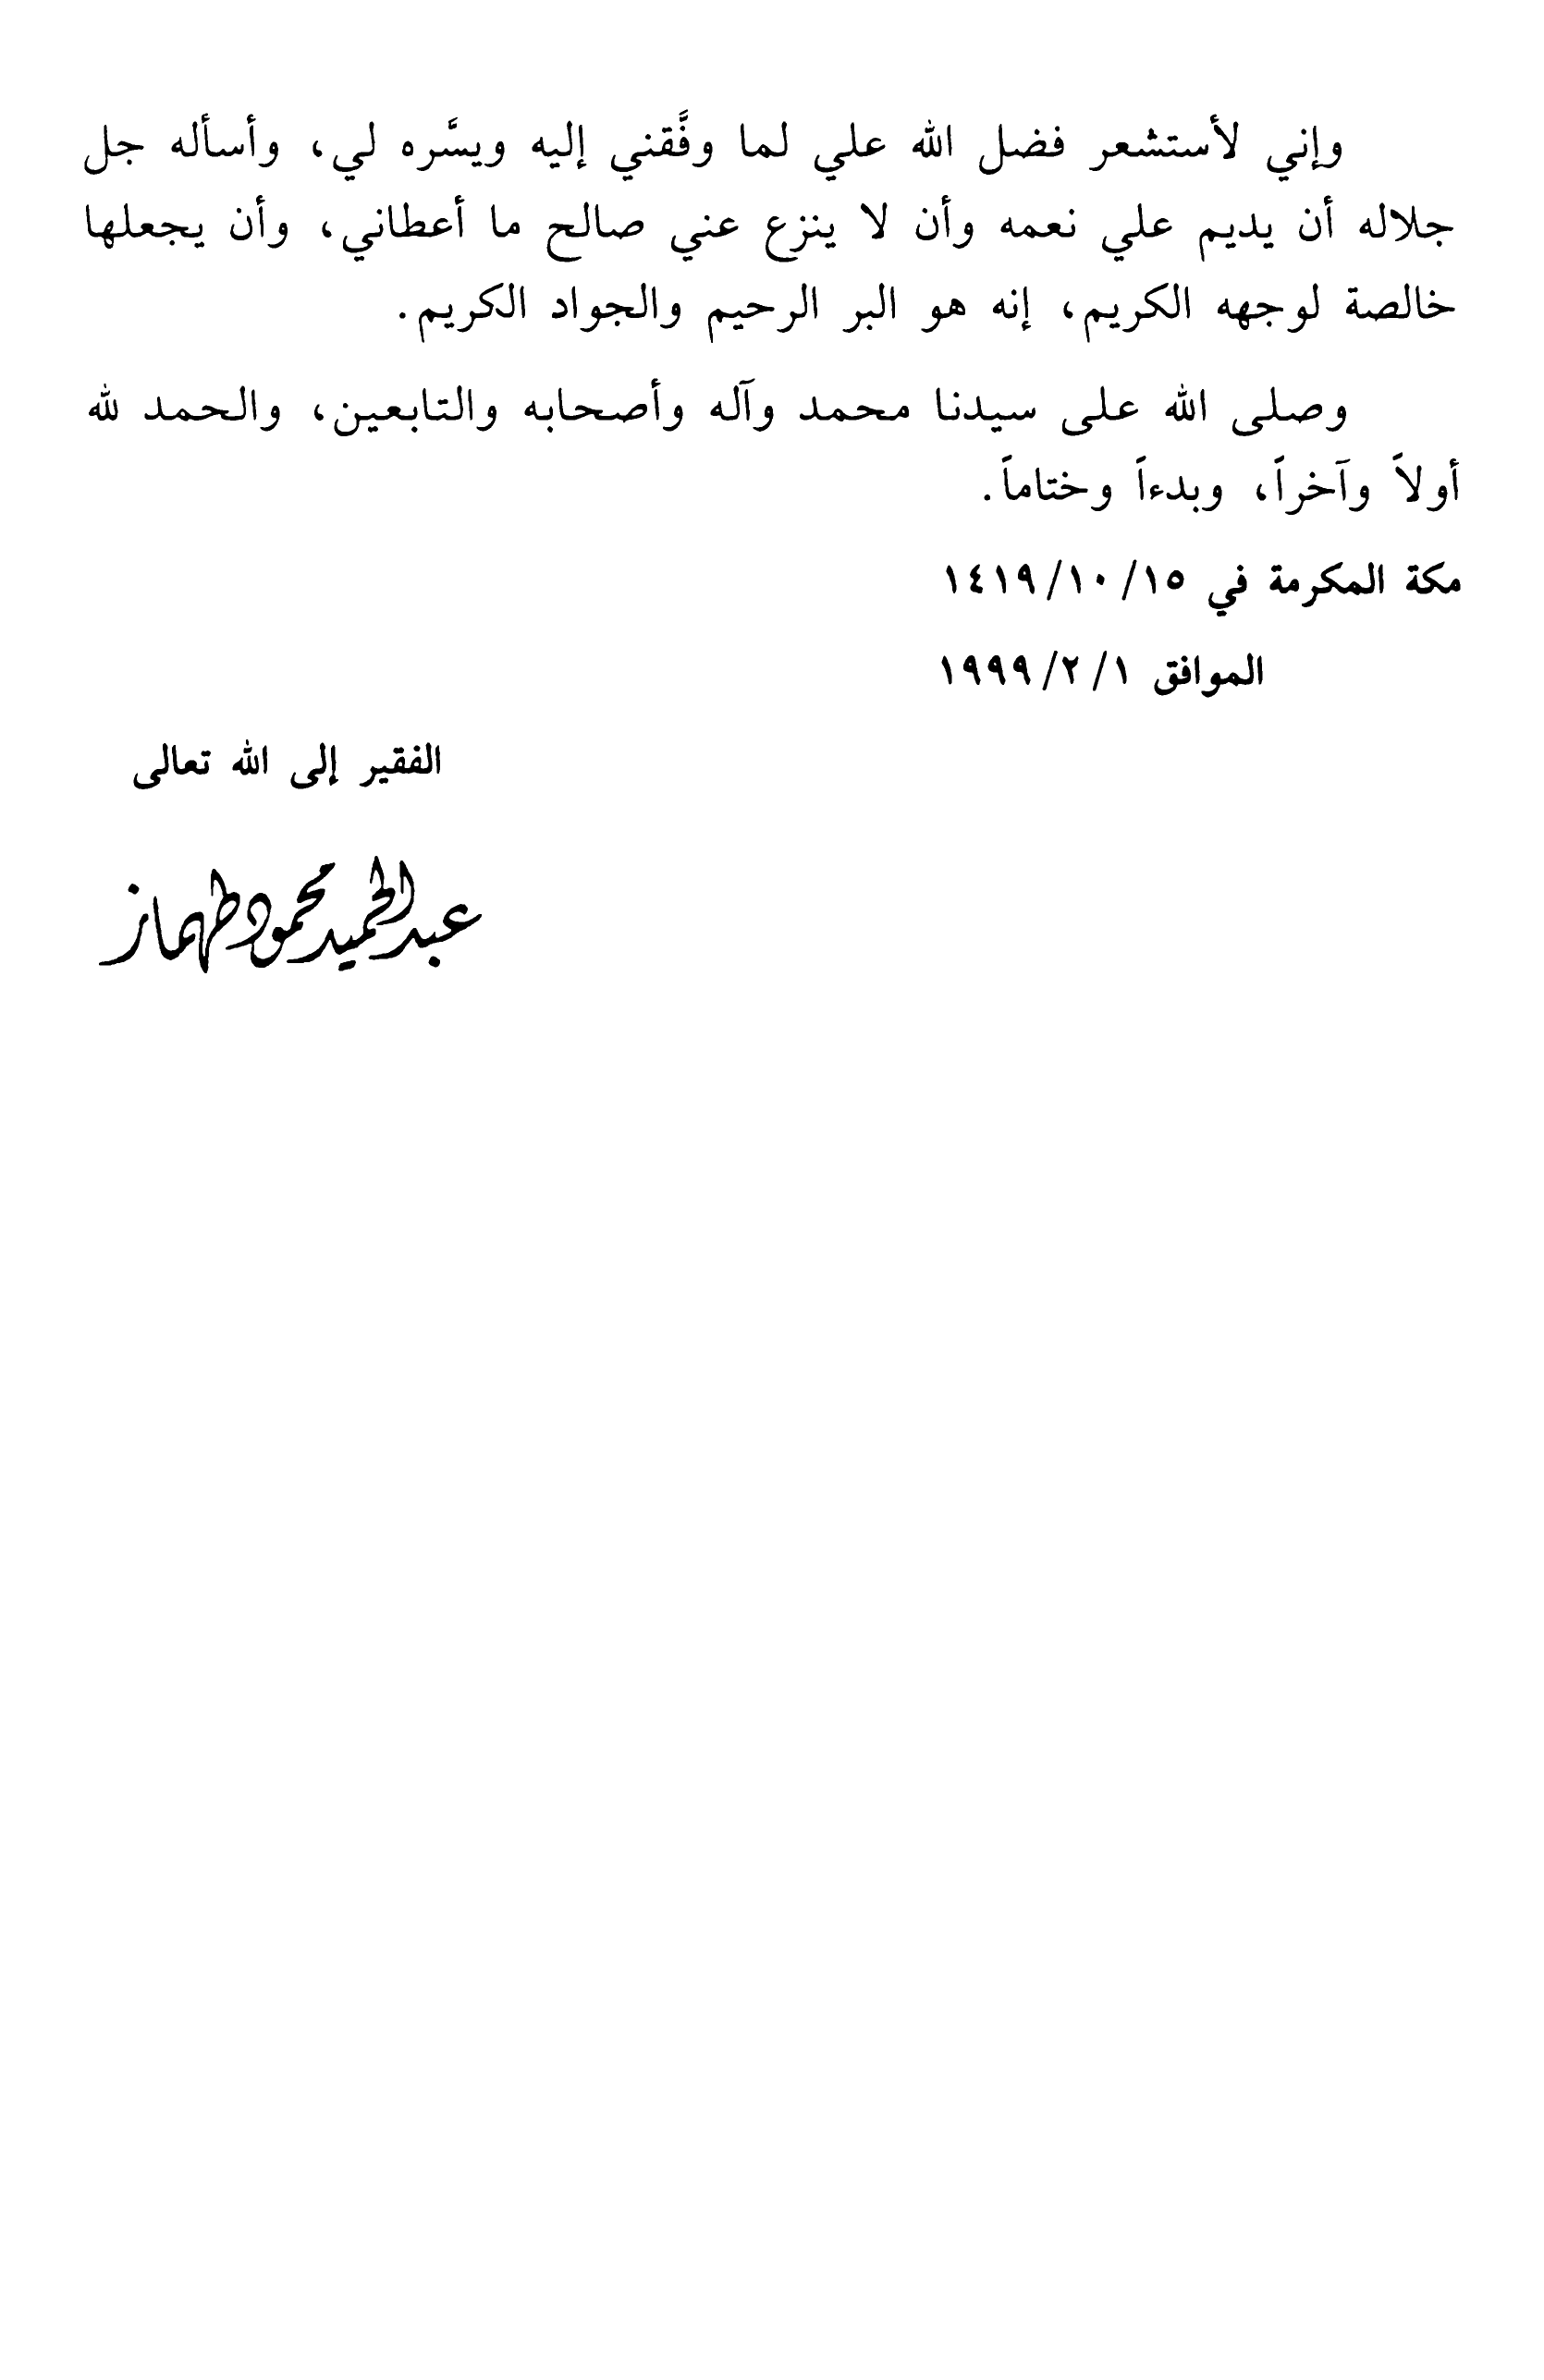 وإني لأستشعر فضل الله علي لما وفَّقني إليه ويسَّره لي، وأسأله جل
جلاله أن يديم علي نعمه وأن لا ينزع عني صالح ما أعطاني، وأن يجعلها
خالصة لوجهه الكريم، إنه هو البر الرحيم والجواد الكريم.
وصلى الله على سيدنا محمد وآله وأصحابه والتابعين، والحمد لله
أولاً وآخراً، وبدءاً وختاماً.
مكة المكرمة في ١٤١٩/١٠/١٥
الموافق ١٩٩٩/٢/١
الفقير إلى الله تعالى
عبد الحميد محمود طهماز